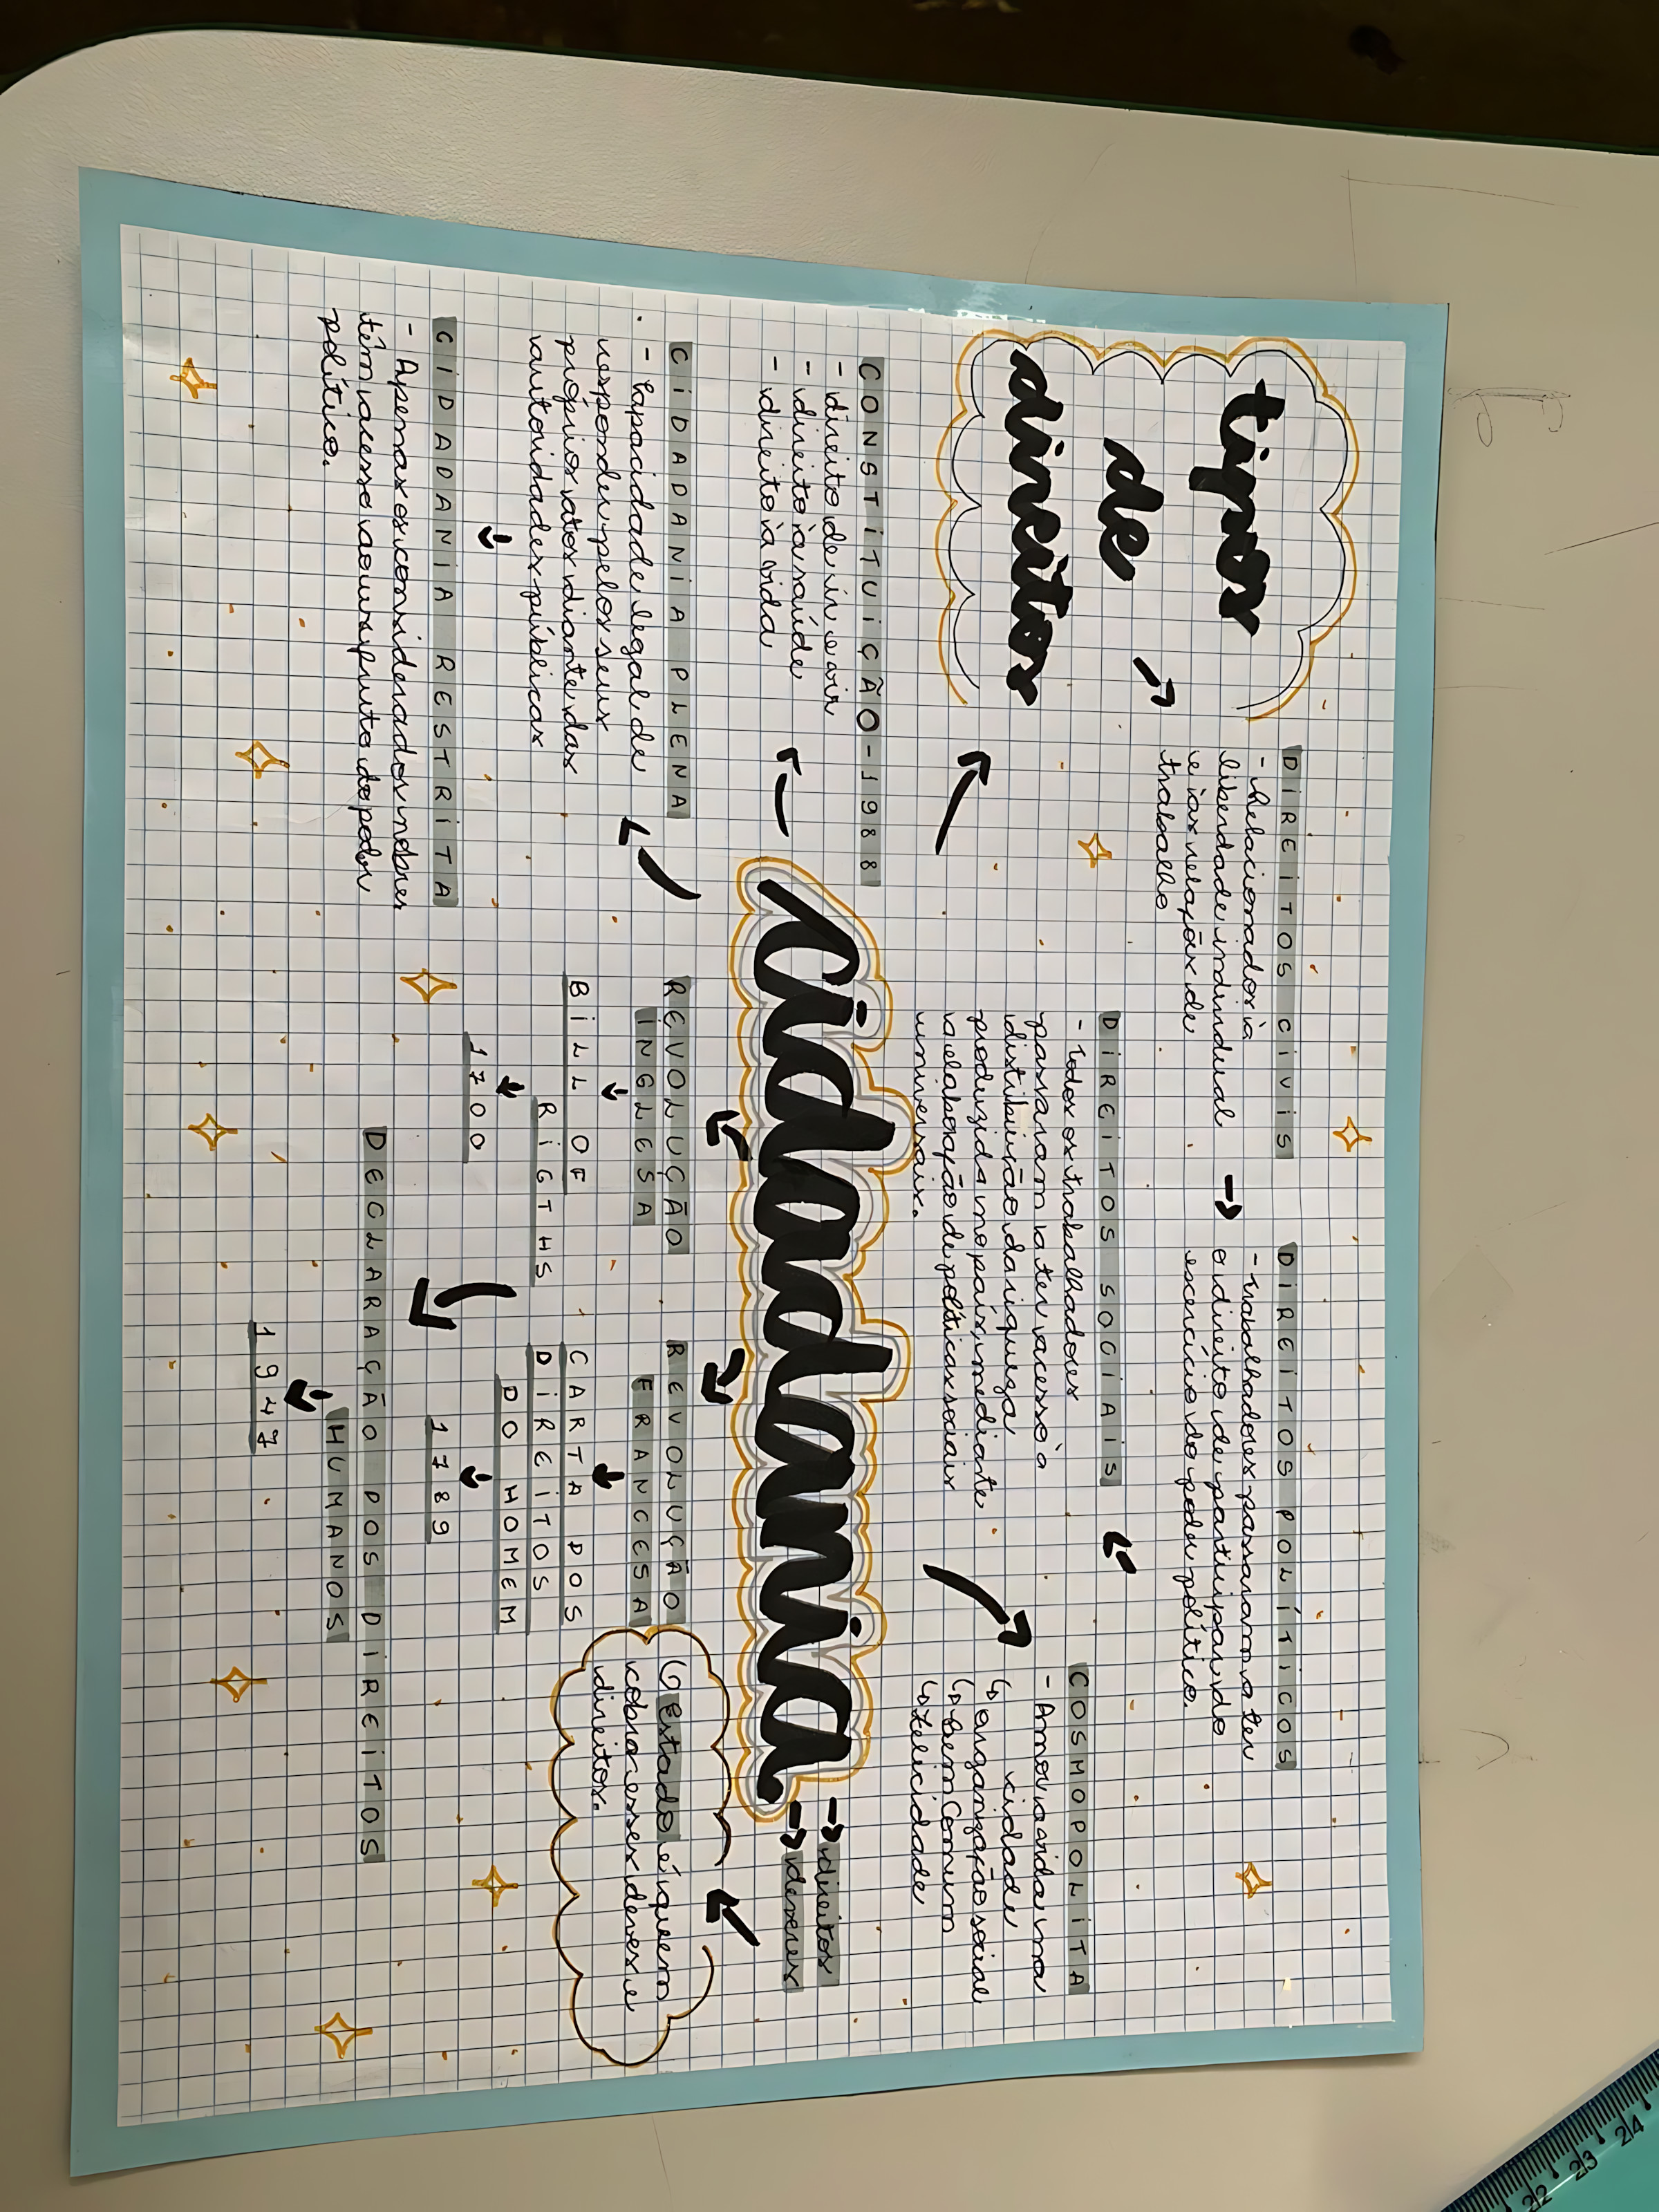 tipos
de
direitos
DIREITOS CIVIS
- Relacionados à
liberdade individual
e às relações de
trabalho
DIREITOS POLÍTICOS
- Trabalhadores passaram a ter
o direito de participar do
exercício do poder político.
DIREITOS SOCIAIS
- Todos os trabalhadores
passaram a ter acesso à
distribuição da riqueza
produzida no país, mediante
a elaboração de políticas sociais
universais.
COSMOPOLITA
- Amor à vida na
cidade
organização social
Bem Comum
Felicidade
CONSTITUIÇÃO - 1988
- direito de ir e vir
- direito à saúde
- direito à vida
Cidadania
direitos
deveres
CIDADANIA PLENA
- Capacidade legal de
responder pelos seus
próprios atos diante das
autoridades públicas
CIDADANIA RESTRITA
- Apenas os considerados nobres
têm acesso ao usufruto do poder
político.
REVOLUÇÃO
INGLESA
BILL OF
RIGTHS
1700
REVOLUÇÃO
FRANCESA
CARTA DOS
DIREITOS
DO HOMEM
1789
DECLARAÇÃO DOS DIREITOS
HUMANOS
1947
Estado é quem
cobra esses deveres e
direitos.
22 23 24